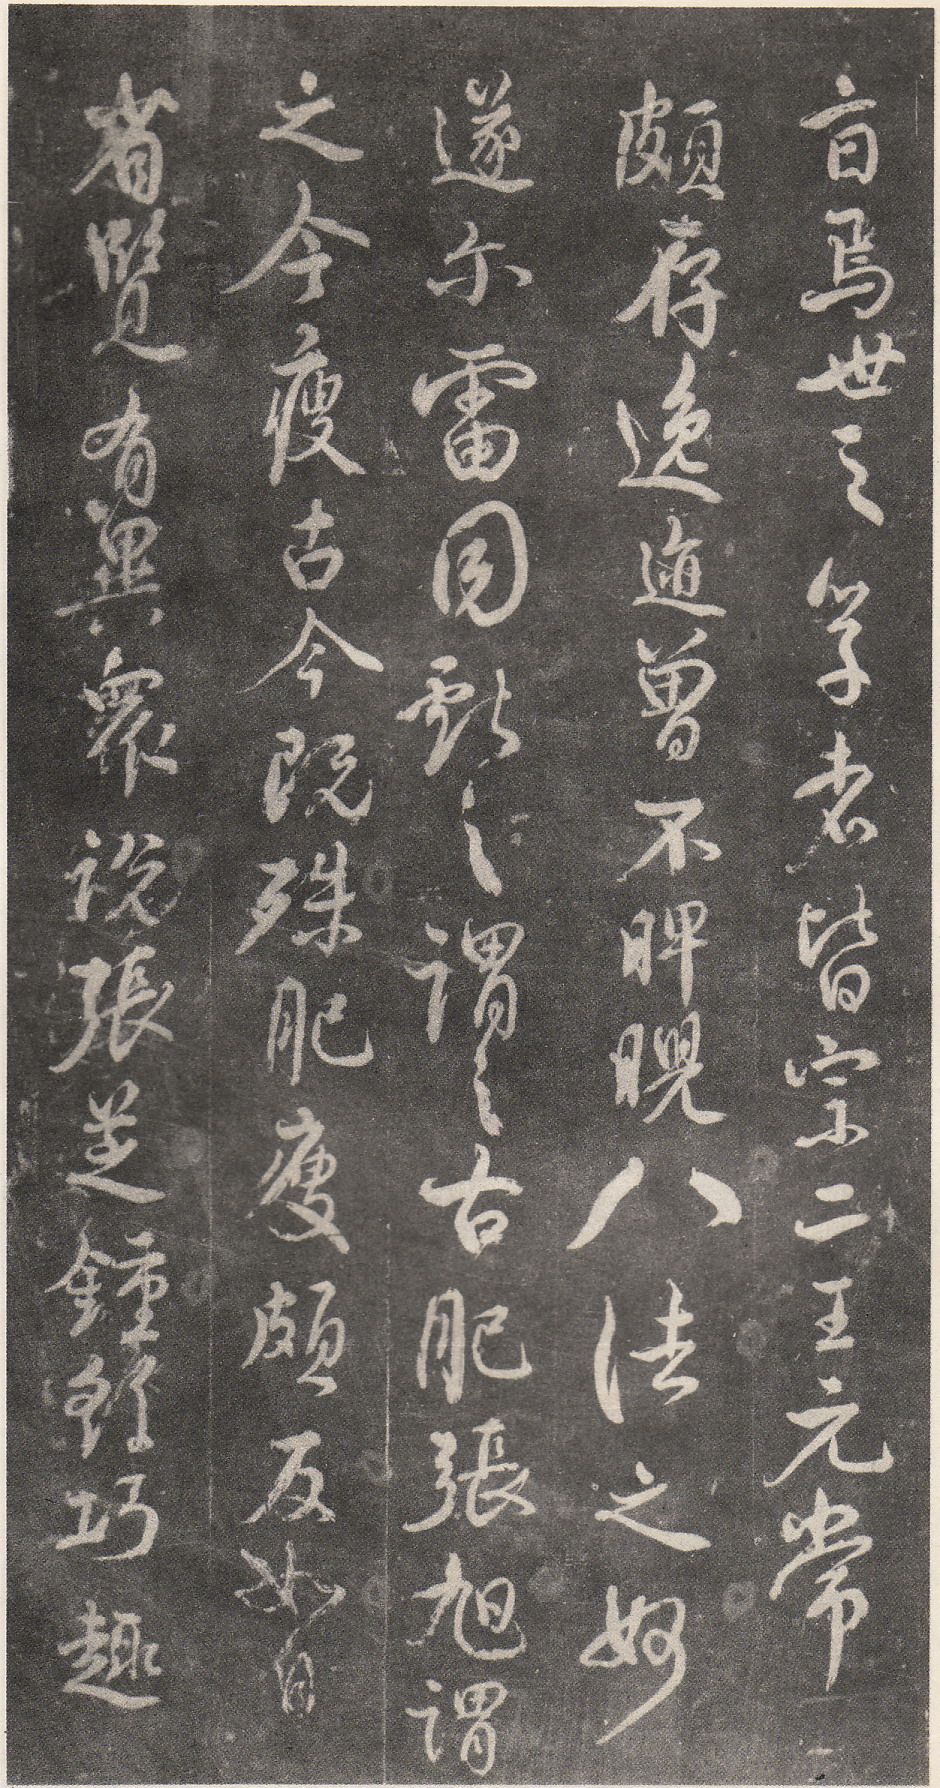 焉世之學者皆宗二王元常
頗存逸曾不睥睨八法之妙
遂尔雷同獻之謂之古肥張旭謂
之今瘦古今既殊肥瘦頗反如自
省覽有異眾說張芝鍾繇巧趣